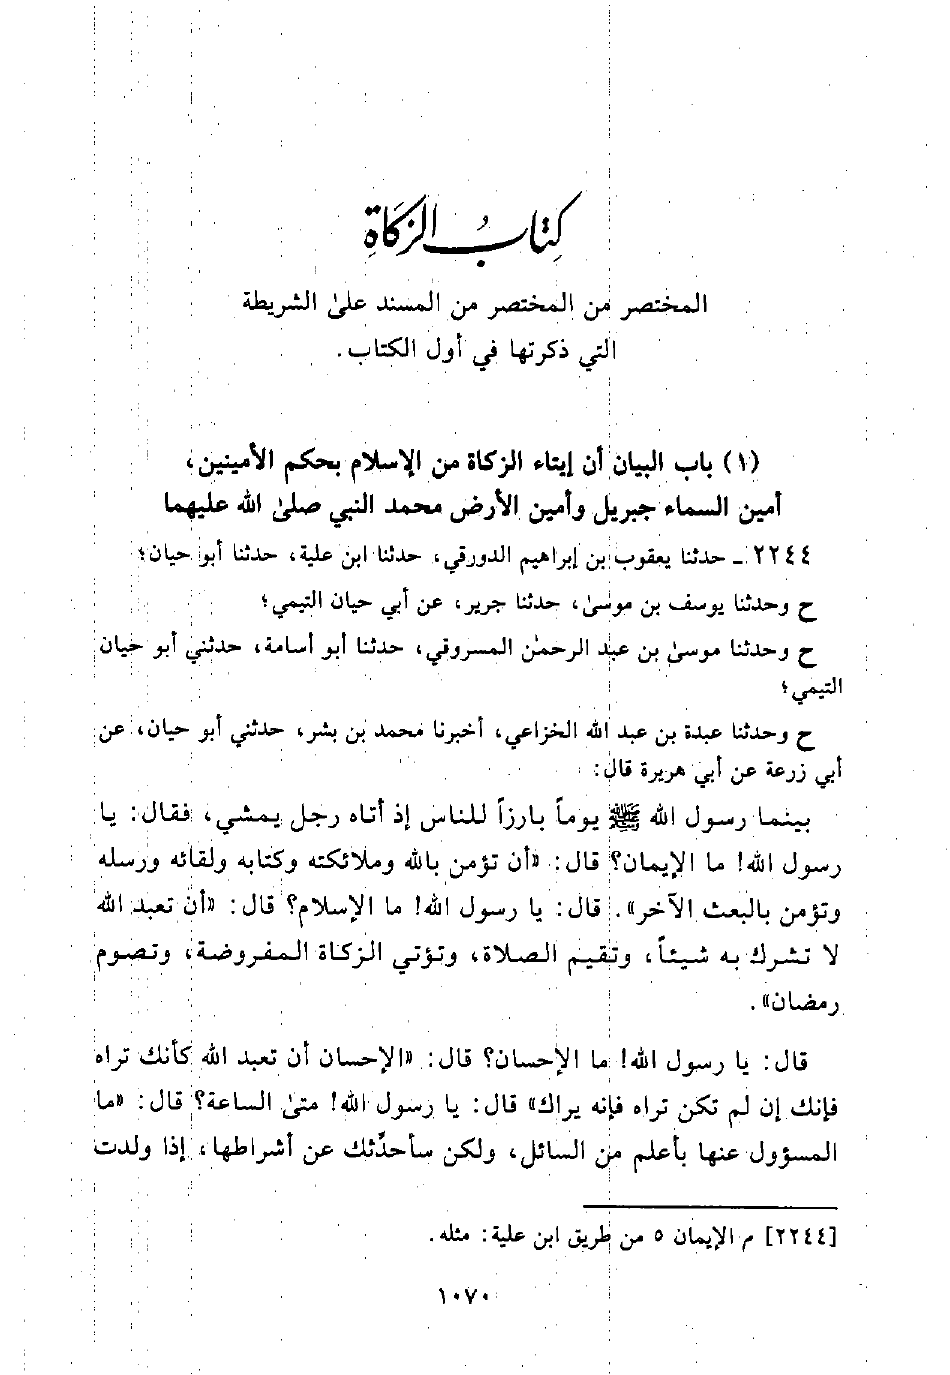 كِتَابُ الزَّكَاةِ
المختصر من المختصر من المسند علىٰ الشريطة
التي ذكرتها في أول الكتاب.
(١) باب البيان أن إيتاء الزكاة من الإسلام بحكم الأمينين،
أمين السماء جبريل وأمين الأرض محمد النبي صلىٰ الله عليهما
٢٢٤٤ ـ حدثنا يعقوب بن إبراهيم الدورقي، حدثنا ابن علية، حدثنا أبو حيان؛
ح وحدثنا يوسف بن موسىٰ، حدثنا جرير، عن أبي حيان التيمي؛
ح وحدثنا موسىٰ بن عبد الرحمٰن المسروقي، حدثنا أبو أسامة، حدثني أبو حيان
التيمي؛
ح وحدثنا عبدة بن عبد الله الخزاعي، أخبرنا محمد بن بشر، حدثني أبو حيان، عن
أبي زرعة عن أبي هريرة قال:
بينما رسول الله ﷺ يوماً بارزاً للناس إذ أتاه رجل يمشي، فقال: يا
رسول الله! ما الإيمان؟ قال: «أن تؤمن بالله وملائكته وكتابه ولقائه ورسله
وتؤمن بالبعث الآخر». قال: يا رسول الله! ما الإسلام؟ قال: «أن تعبد الله
لا تشرك به شيئاً، وتقيم الصلاة، وتؤتي الزكاة المفروضة، وتصوم
رمضان».
قال: يا رسول الله! ما الإحسان؟ قال: «الإحسان أن تعبد الله كأنك تراه
فإنك إن لم تكن تراه فإنه يراك» قال: يا رسول الله! متىٰ الساعة؟ قال: «ما
المسؤول عنها بأعلم من السائل، ولكن سأحدِّثك عن أشراطها، إذا ولدت
[٢٢٤٤] م الإيمان ٥ من طريق ابن علية: مثله.
١٠٧٠